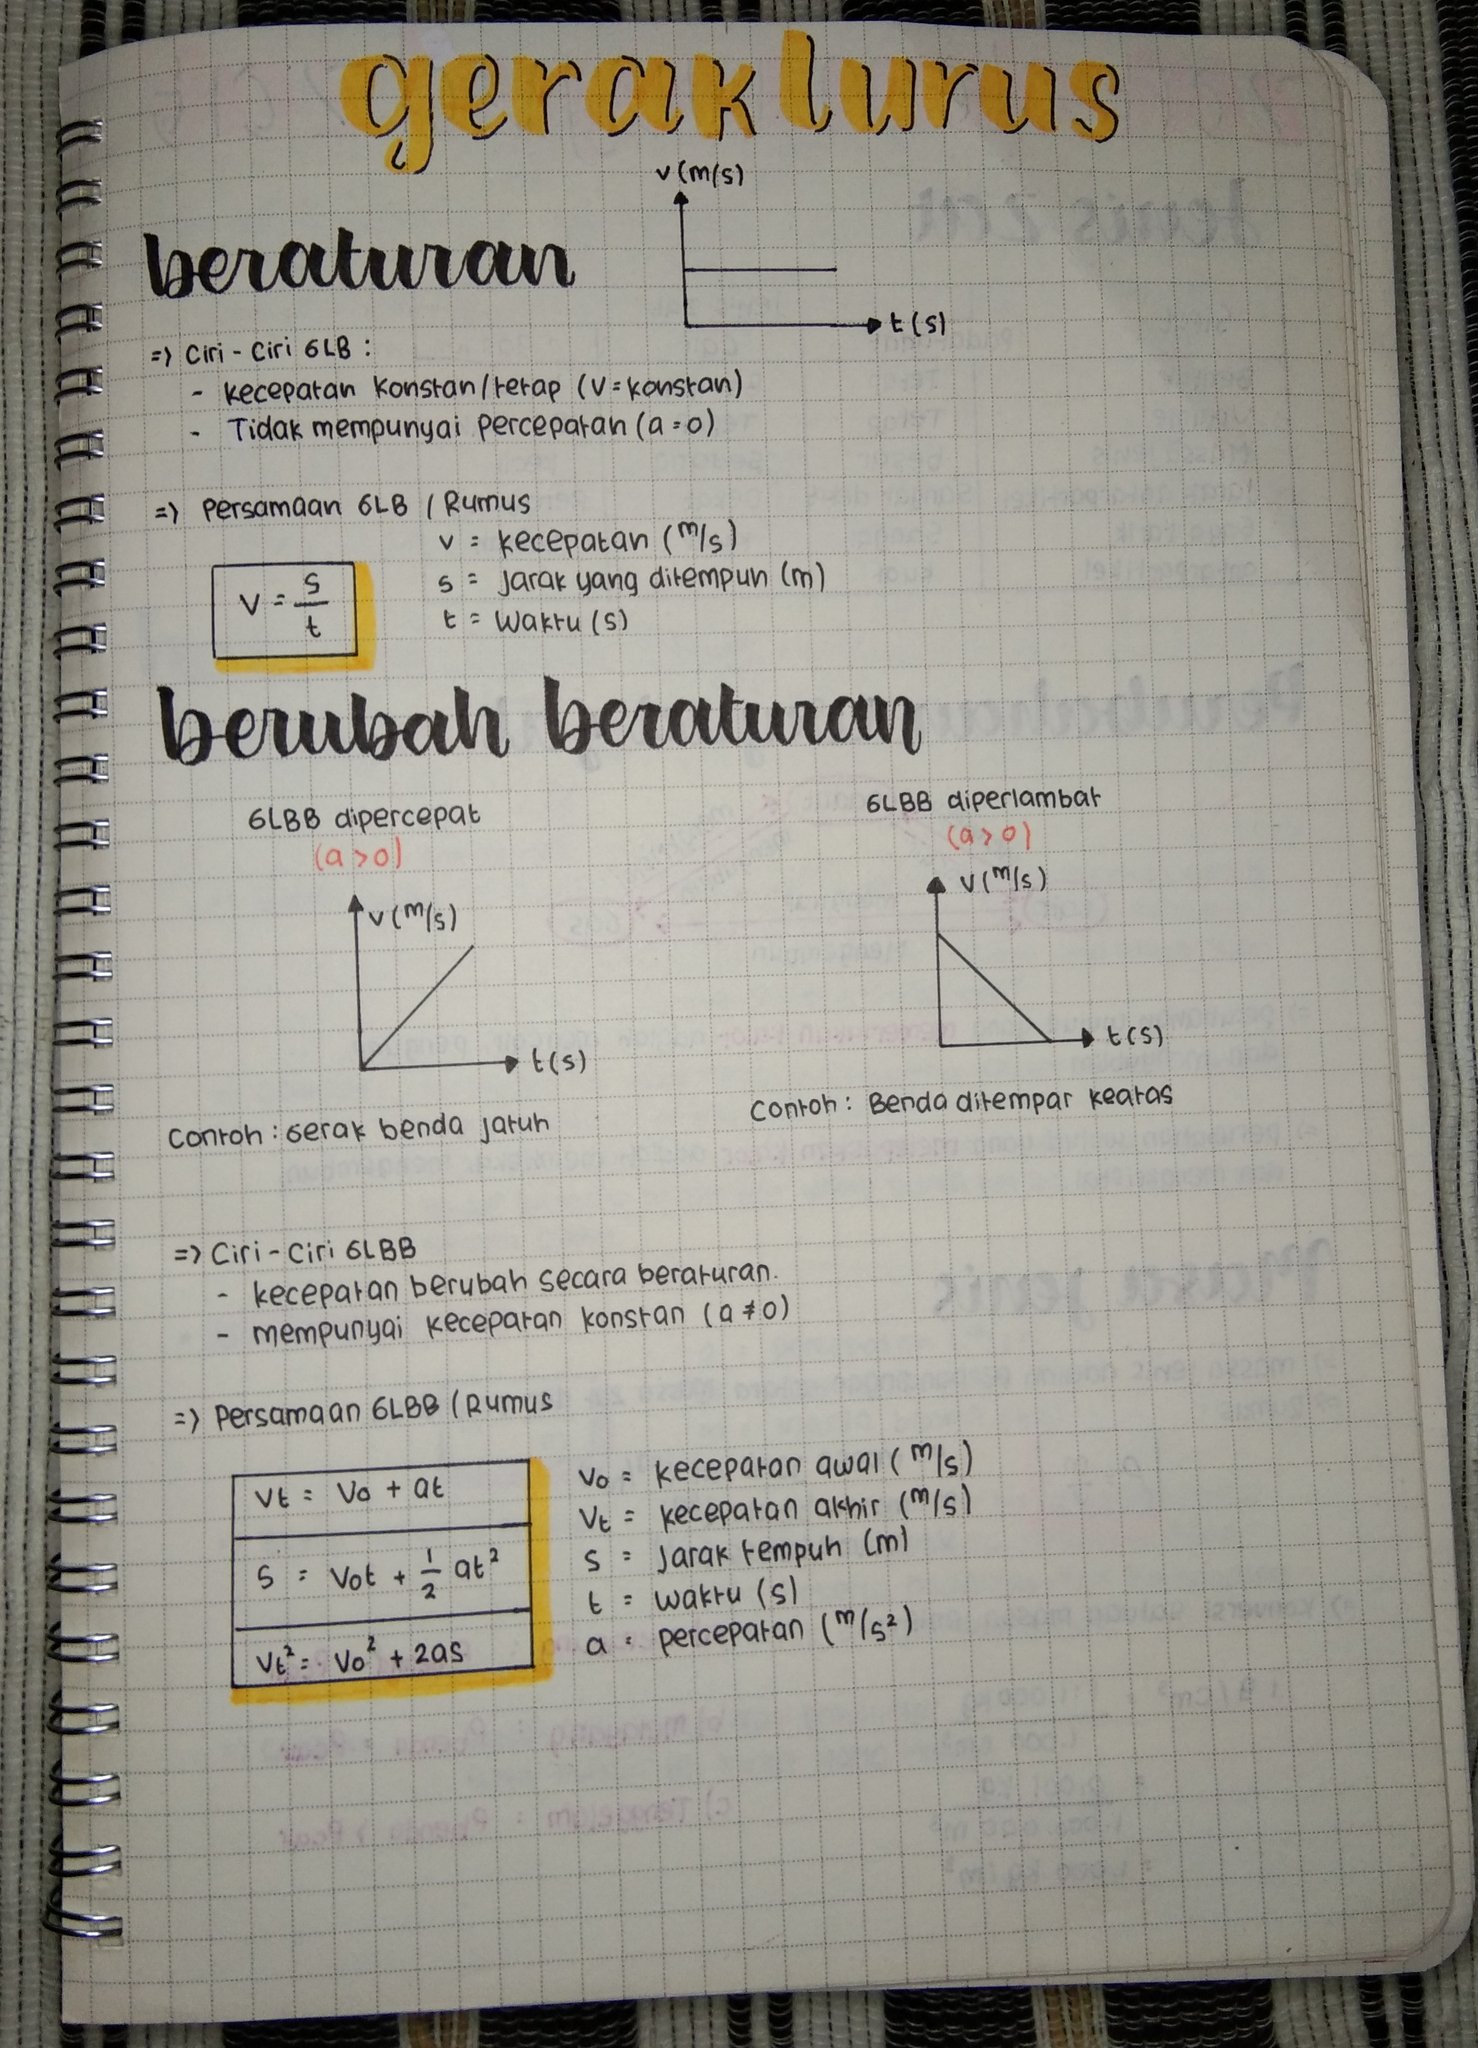 gerak lurus
v (m/s)
beraturan
t (s)
=> Ciri - Ciri GLB :
- kecepatan konstan/tetap (v = konstan)
- Tidak mempunyai percepatan (a = 0)
=> Persamaan GLB / Rumus
v = kecepatan (m/s)
s = jarak yang ditempuh (m)
t = waktu (s)
V = s/t
berubah beraturan
GLBB dipercepat
(a > 0)
v (m/s)
t (s)
Contoh : Gerak benda jatuh
GLBB diperlambat
(a > 0)
V (m/s)
t (s)
Contoh : Benda ditempar keatas
=> Ciri - Ciri GLBB
- kecepatan berubah secara beraturan.
- mempunyai kecepatan konstan (a ≠ 0)
=> Persamaan GLBB / Rumus
Vt = Vo + at
S = Vot + 1/2 at²
Vt² = Vo² + 2as
Vo = kecepatan awal (m/s)
Vt = kecepatan akhir (m/s)
S = Jarak tempuh (m)
t = waktu (s)
a = percepatan (m/s²)